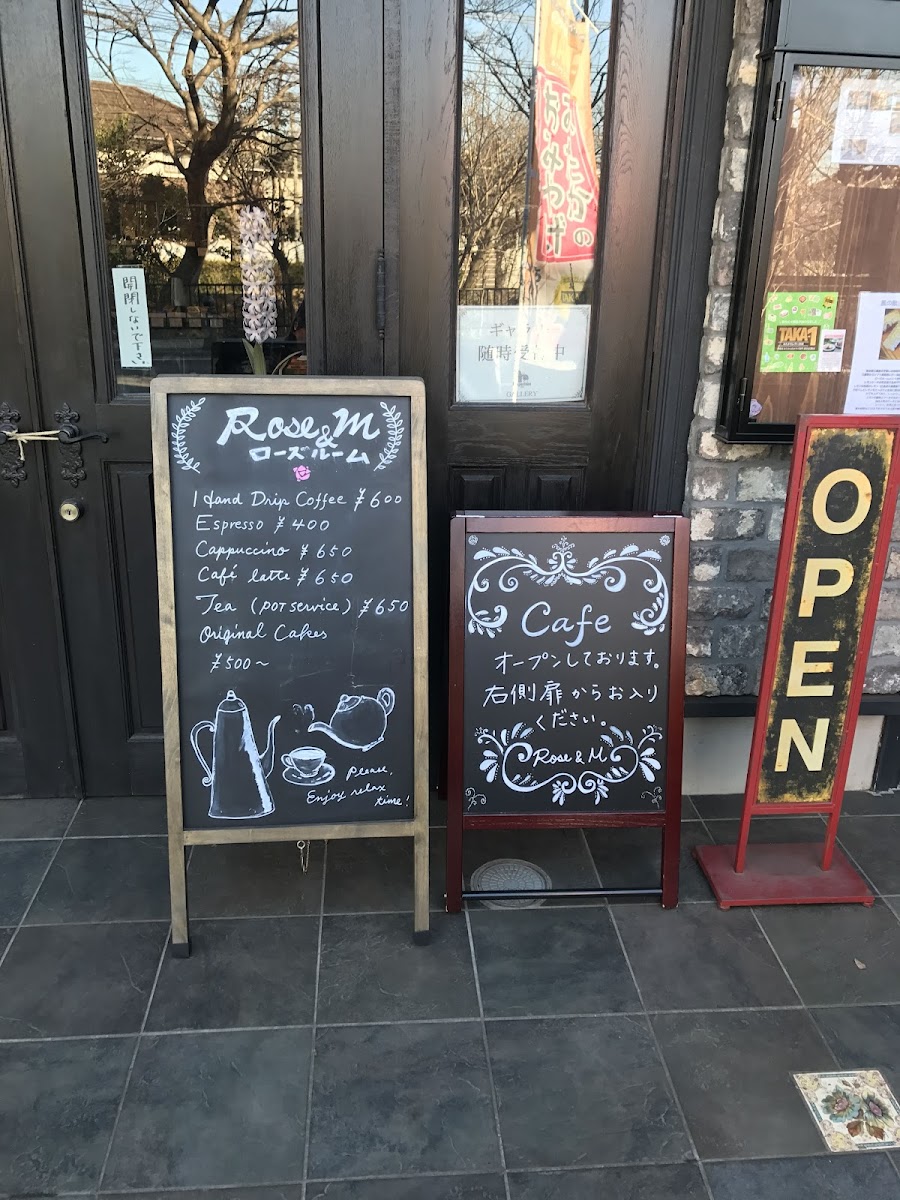 開閉しないで下さい
おおたかの
おみやげ
ギャラリー
随時受付中
GALLERY
TAKA-1
Rose & M
ローズルーム
Hand Drip Coffee ¥600
Espresso ¥400
Cappuccino ¥650
Café latte ¥650
Tea (POT SERVICE) ¥650
Original Cakes
¥500～
Please,
Enjoy relax
time!
Cafe
オープンしております。
右側扉からお入り
ください。
Rose & M
OPEN